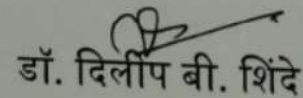 डॉ. दिलीप बी. शिंदे